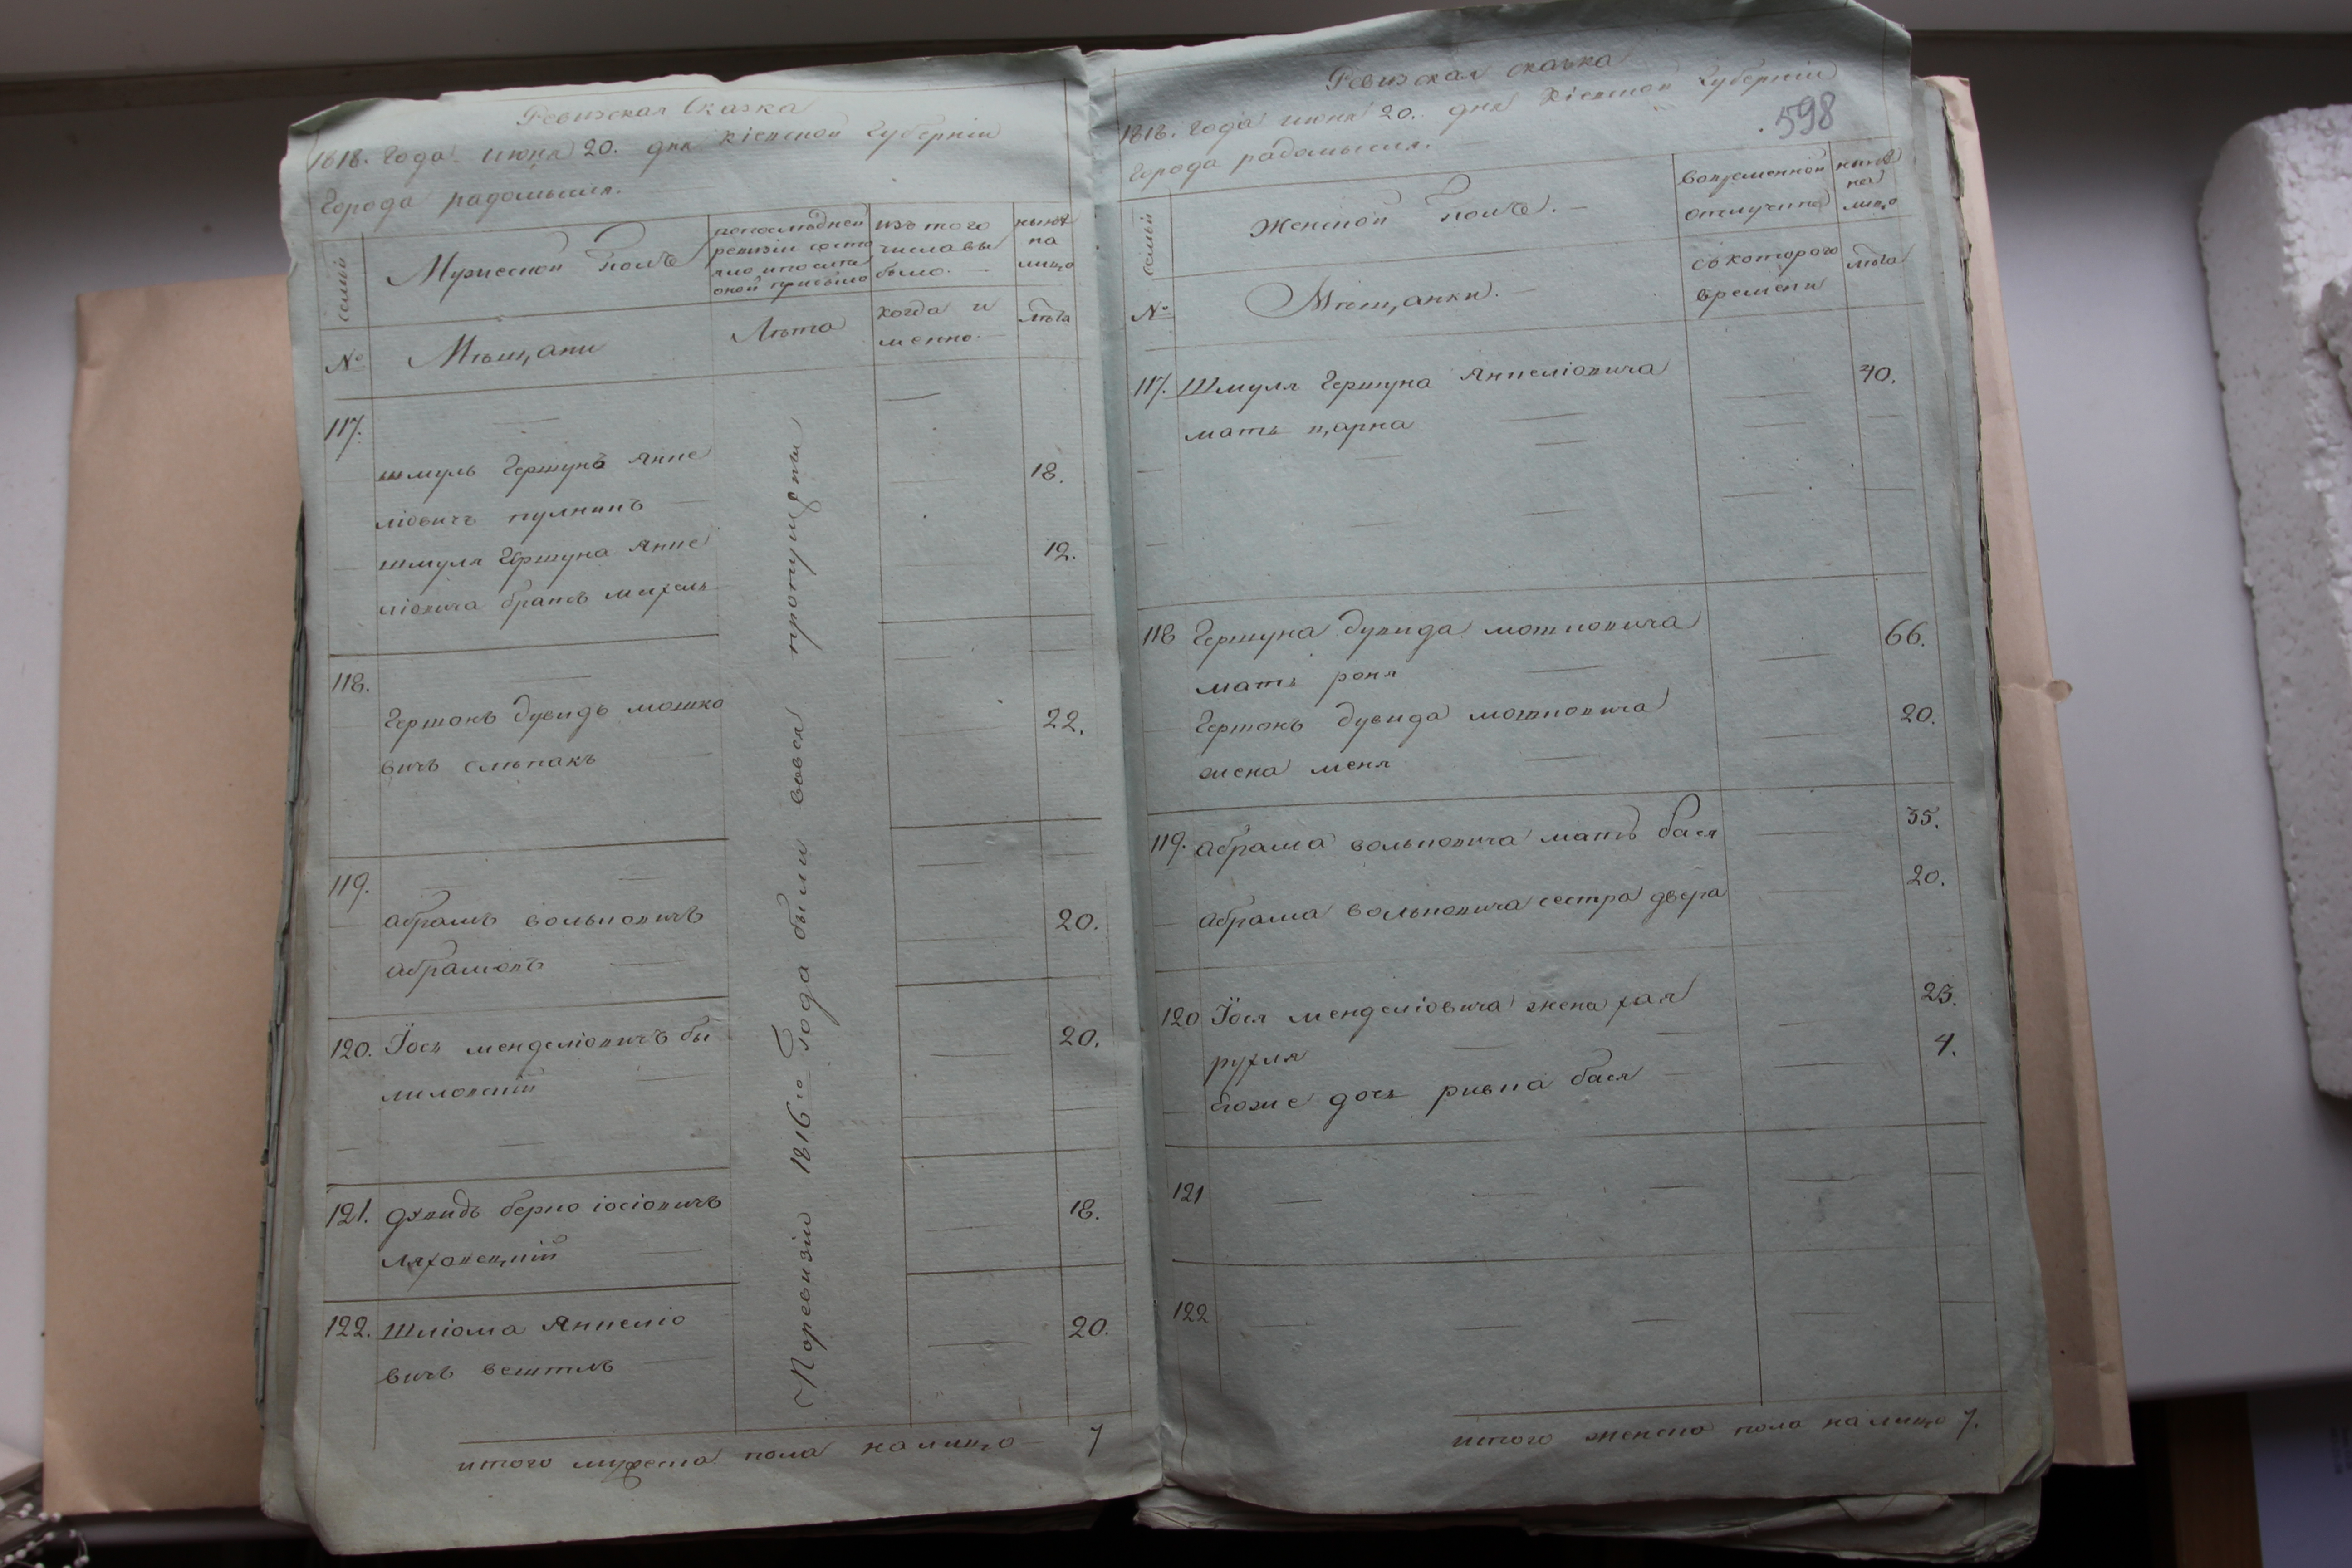 Ревизская Сказка
1818. Года июня 20. дня Кіевской Губерніи
Города радомысля.
семьи
Мужеской Полъ
попоследней
ревизіи состо
яло ипосли
оной прибыло
изъ того
числа вы
было.
ныне
на
лицо
№
Мѣщани
Лѣта
когда и
менно.
лѣта
117.
шмуль Гершунъ Анке
ліовичъ пулкинъ
18.
шмуля Гершуна Анке
ліовича братъ михель
12.
118.
Гершонъ дувидъ мошко
вичъ слѣпакъ
22.
119.
абрамъ вольковичъ
абрамовъ
20.
120. Іось менделіовичъ бы
ловскій
20.
121. дувидъ берко іосіовичъ
ляховецкій
18.
122. Шліома Анкеліо
вичъ вештлъ
20.
Поревизіи 1816го Года были вовся пропущены
итого мужеска пола налицо 7
Ревизская сказка
1818. Года июня 20. дня Кіевской Губерніи
598
Города радомысля.
семьи
Женской Полъ.
вовременной
отлучке
ныне
на
лицо
№
Мѣщанки.
съкоторого
времени
лѣта
117. Шмуля Гершуна Анкеліовича
мать царна
40.
118 Гершуна дувида мошковича
мать роня
66.
Гершонъ дувида мошковича
жена меня
20.
119. абрама вольковича мать бася
35.
абрама вольковича сестра двера
20.
120 Іося менделіовича жена хая
рухля
23.
егоже дочь ривка бася
4.
121
122
итого женско пола налицо 7.